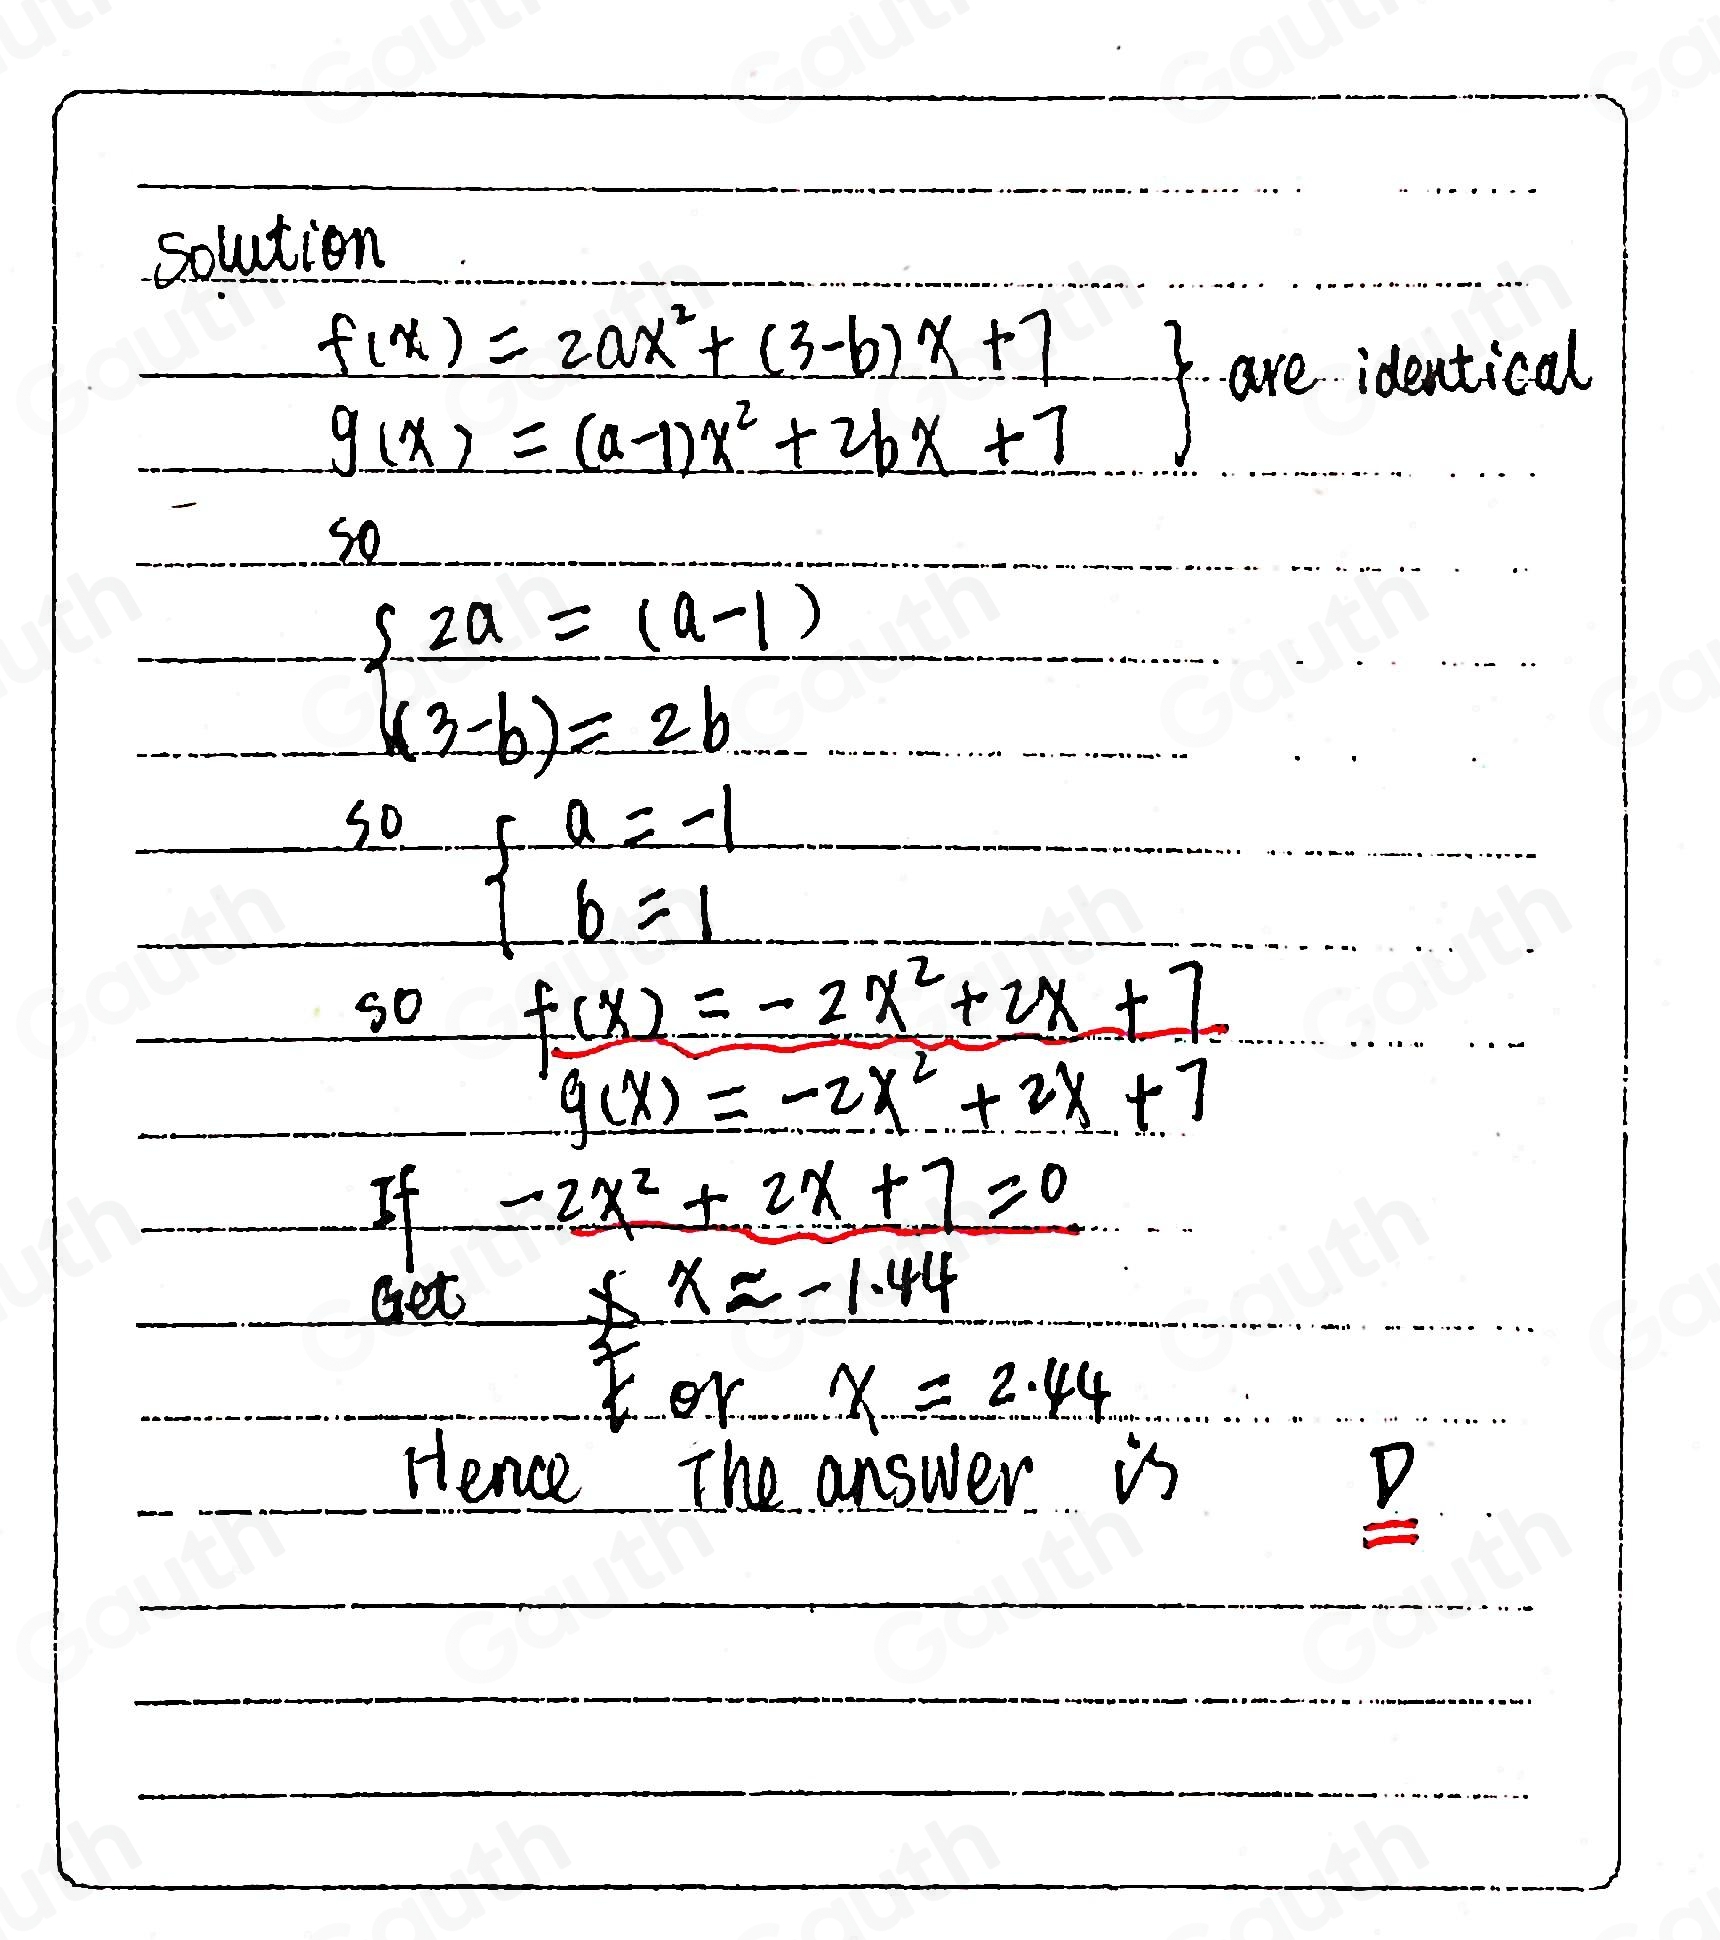 Solution
f(x) = 2ax² + (3-b)x + 7
g(x) = (a-1)x² + 2bx + 7
} are identical
so
{ 2a = (a-1)
(3-b) = 2b
so { a = -1
b = 1
so f(x) = -2x² + 2x + 7
g(x) = -2x² + 2x + 7
If -2x² + 2x + 7 = 0
Get { x ≈ -1.44
or x = 2.44
Hence The answer is D
Gauth